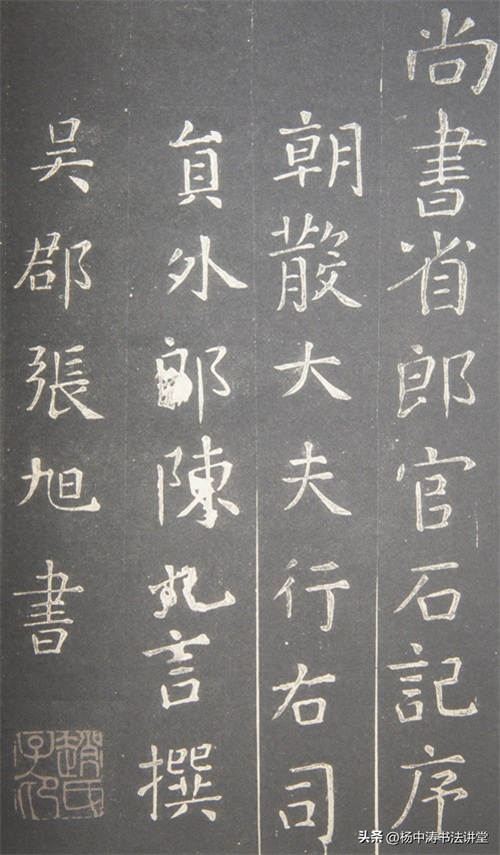 尚書省郎官石記序
朝散大夫行右司
貟外郎陳九言撰
吳郡張旭書
趙氏子昂
头条 @杨中涛书法讲堂